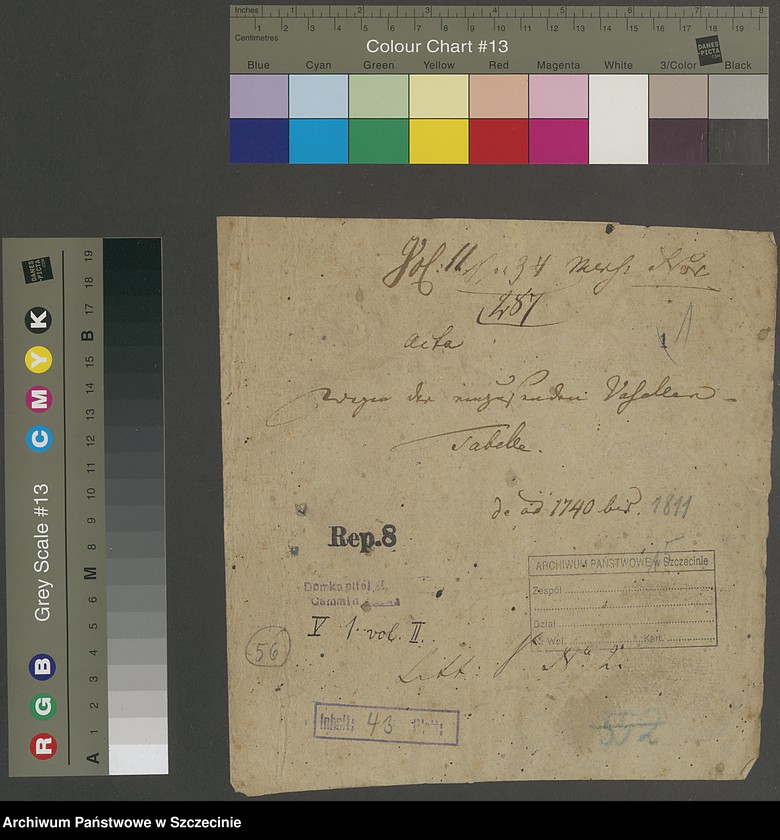 Inches 1 2 3 4 5 6 7 8
Centimetres 1 2 3 4 5 6 7 8 9 10 11 12 13 14 15 16 17 18 19
Colour Chart #13
DANES PICTA .COM
Blue Cyan Green Yellow Red Magenta White 3/Color Black
Grey Scale #13
DANES PICTA .COM
R G B C M Y K
A 1 2 3 4 5 6 M 8 9 10 11 12 13 14 15 B 17 18 19
Vol: II 34
287
1
Acta
wegen der einzusendenden Vasallen-
Tabelle.
de ao 1740 bis 1811
Rep.8
ARCHIWUM PAŃSTWOWE w Szczecinie
Zespół
Dział
Wol. Kart.
Domkapitel
Cammin
V 1 vol. II.
56
Litt: No 2.
Inhalt: 43 Blatt
Archiwum Państwowe w Szczecinie